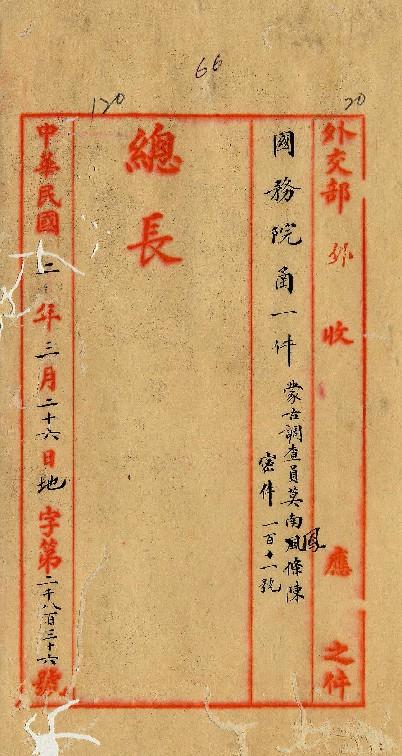 66
120
外交部外收應之件
國務院函一件
蒙古調查員莫南風條陳
鳳
密件一百十一號
總長
中華民國二年三月二十六日地字第二千八百三十六號